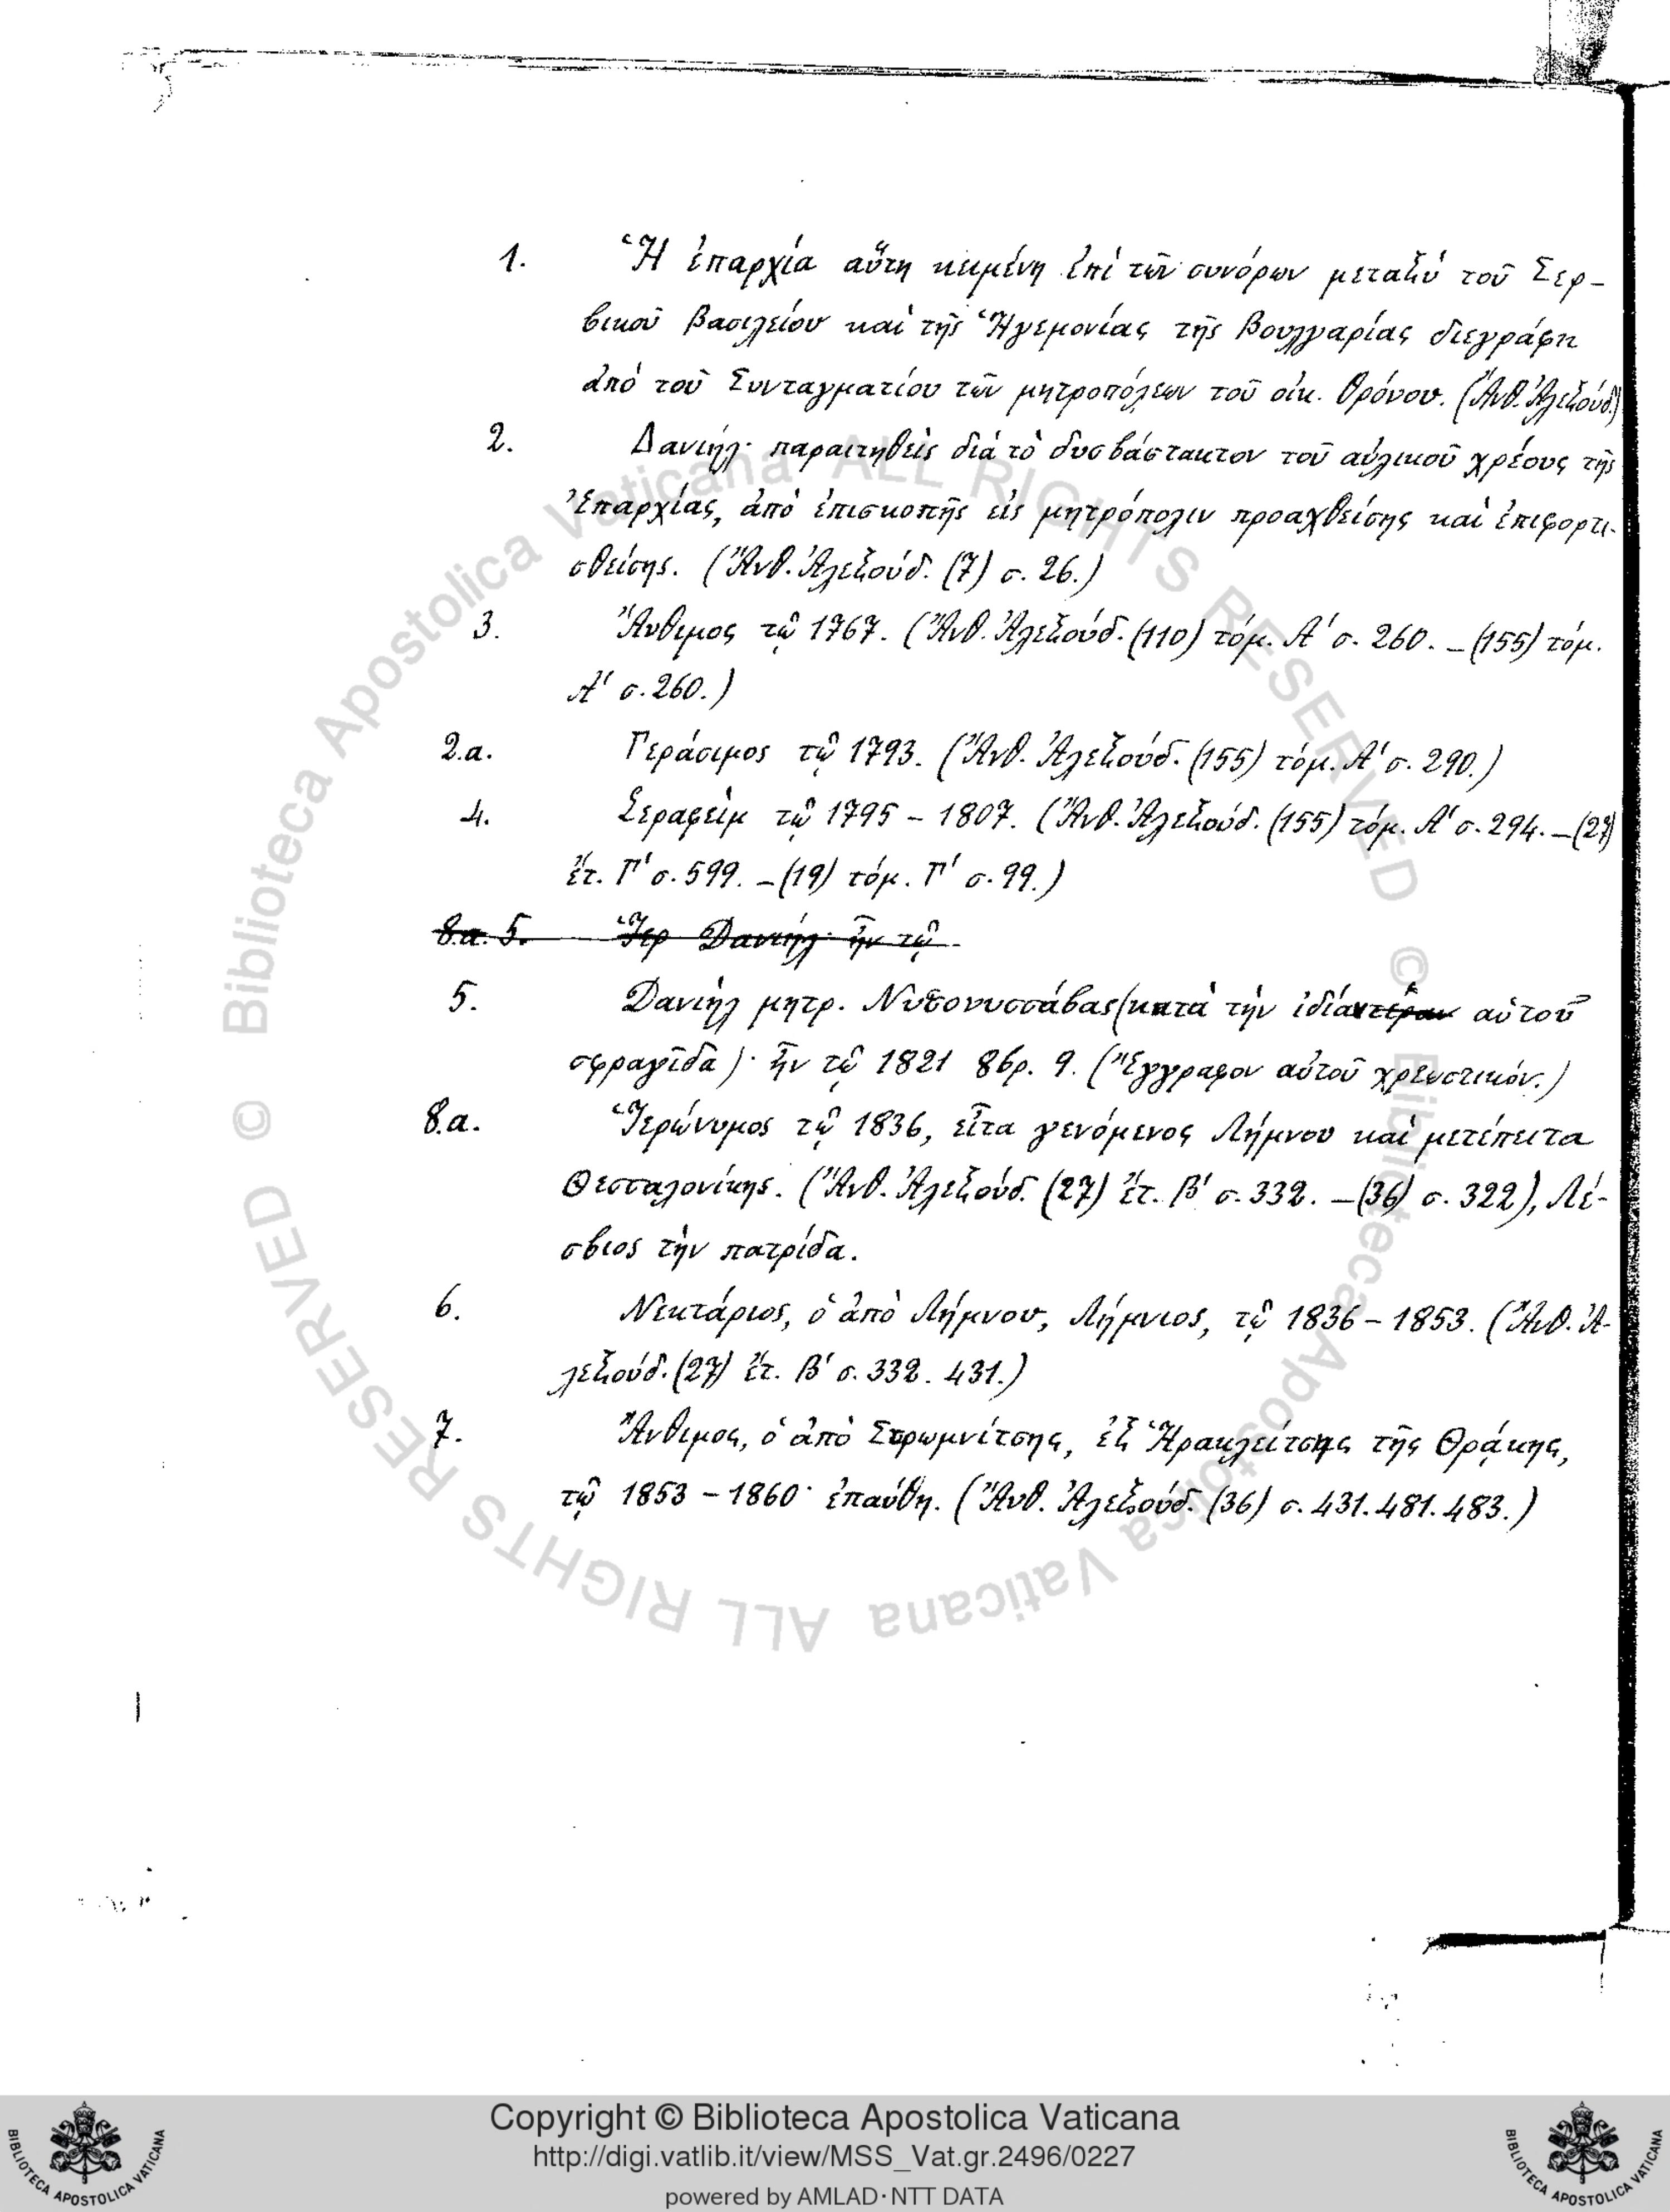 1. Ἡ ἐπαρχία αὕτη κειμένη ἐπὶ τῶν συνόρων μεταξὺ τοῦ Σερ-
βικοῦ βασιλείου καὶ τῆς Ἡγεμονίας τῆς Βουλγαρίας διεγράφη
ἀπὸ τοῦ Συνταγματίου τῶν μητροπόλεων τοῦ οἰκ. θρόνου. (Ἄνθ. Ἀλεξούδ.)
2. Δανιήλ· παραιτηθεὶς διὰ τὸ δυσβάστακτον τοῦ αὐλικοῦ χρέους τῆς
Ἐπαρχίας, ἀπὸ ἐπισκοπῆς εἰς μητρόπολιν προαχθείσης καὶ ἐπιφορτι-
σθείσης. (Ἄνθ. Ἀλεξούδ. (7) σ. 26.)
3. Ἄνθιμος τῷ 1767. (Ἄνθ. Ἀλεξούδ. (110) τόμ. Α' σ. 260. – (155) τόμ.
Α' σ. 260.)
2.α. Γεράσιμος τῷ 1793. (Ἄνθ. Ἀλεξούδ. (155) τόμ. Α' σ. 290.)
4. Σεραφεὶμ τῷ 1795 – 1807. (Ἄνθ. Ἀλεξούδ. (155) τόμ. Α' σ. 294. – (27)
ἔτ. Γ' σ. 599. – (19) τόμ. Γ' σ. 99.)
8.α. 5. Ἱερ Δανιήλ· ἦν τῷ
5. Δανιὴλ μητρ. Νυσονυσσάβας (κατὰ τὴν ἰδίαν αὐτοῦ
σφραγῖδα)· ἦν τῷ 1821 8βρ. 9. (Ἔγγραφον αὐτοῦ χρεωστικόν.)
8.α. Ἱερώνυμος τῷ 1836, εἶτα γενόμενος Λήμνου καὶ μετέπειτα
Θεσσαλονίκης. (Ἄνθ. Ἀλεξούδ. (27) ἔτ. Β' σ. 332. – (36) σ. 322), Λέ-
σβιος τὴν πατρίδα.
6. Νεκτάριος, ὁ ἀπὸ Λήμνου, Λήμνιος, τῷ 1836 – 1853. (Ἄνθ. Ἀ-
λεξούδ. (27) ἔτ. Β' σ. 332. 431.)
7. Ἄνθιμος, ὁ ἀπὸ Στρωμνίτσης, ἐξ Ἡρακλείτσης τῆς Θράκης,
τῷ 1853 – 1860· ἐπαύθη. (Ἄνθ. Ἀλεξούδ. (36) σ. 431. 481. 483.)
© Biblioteca Apostolica Vaticana ALL RIGHTS RESERVED © Biblioteca Apostolica Vaticana ALL RIGHTS RESERVED
BIBLIOTECA APOSTOLICA VATICANA
Copyright © Biblioteca Apostolica Vaticana
http://digi.vatlib.it/view/MSS_Vat.gr.2496/0227
powered by AMLAD·NTT DATA
BIBLIOTECA APOSTOLICA VATICANA